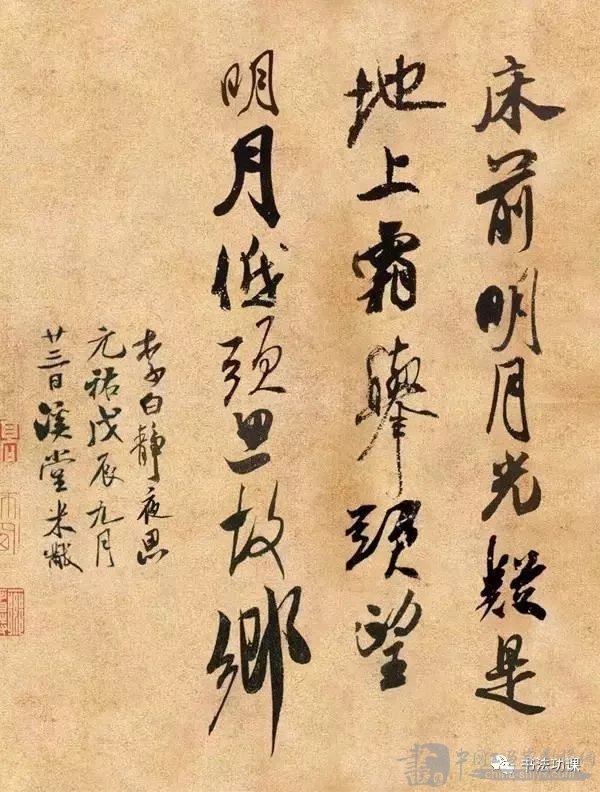 床前明月光疑是
地上霜舉頭望
明月低頭思故鄉
李白靜夜思
元祐戊辰九月
廿三日溪堂米黻
书法功课
china-shjyx.com